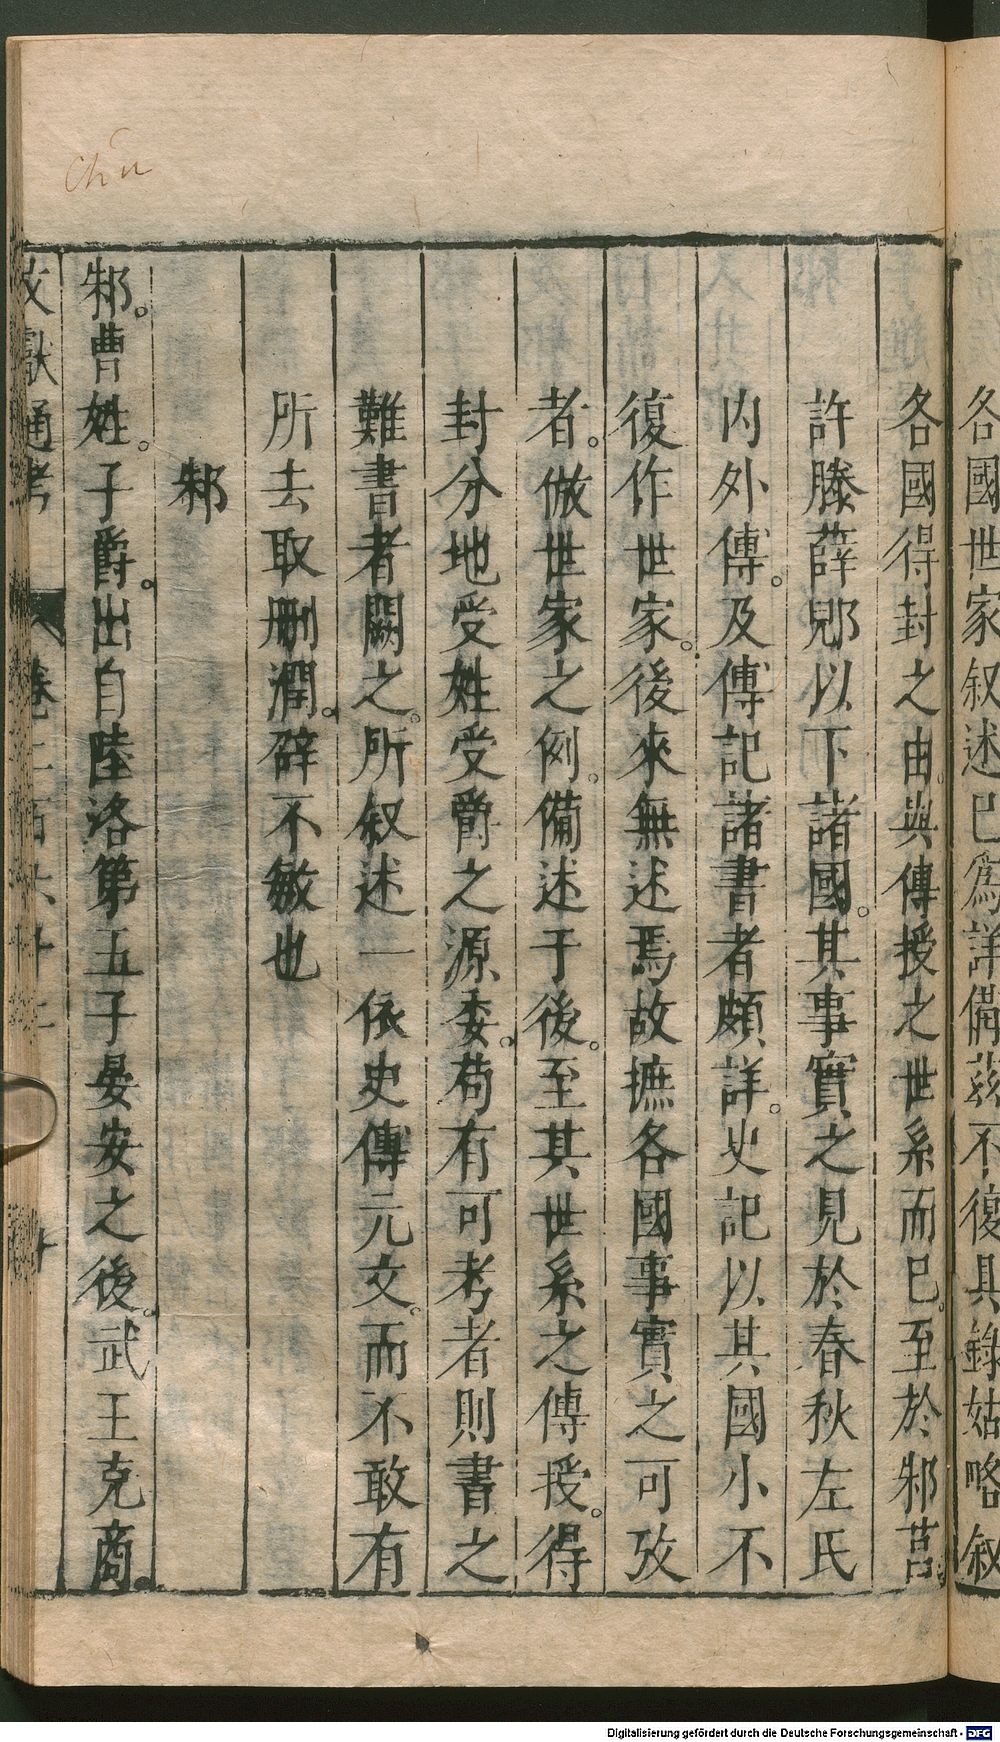 Chu
各國世家叙述已爲詳備茲不復具錄姑略叙
各國得封之由與傳授之世系而已。至於邾莒
許滕薛郳以下諸國。其事實之見於春秋左氏
內外傳。及傳記諸書者頗詳。史記以其國小不
復作世家。後來無述焉故摭各國事實之可攷
者。倣世家之例。備述于後。至其世系之傳授。得
封分地受姓受爵之源委。苟有可考者則書之
難書者闕之。所叙述一依史傳元文。而不敢有
所去取刪潤。辭不敏也
邾
邾。曹姓。子爵。出自陸洛第五子晏安之後。武王克商
文獻通考 卷二百六十二
Digitalisierung gefördert durch die Deutsche Forschungsgemeinschaft - DFG